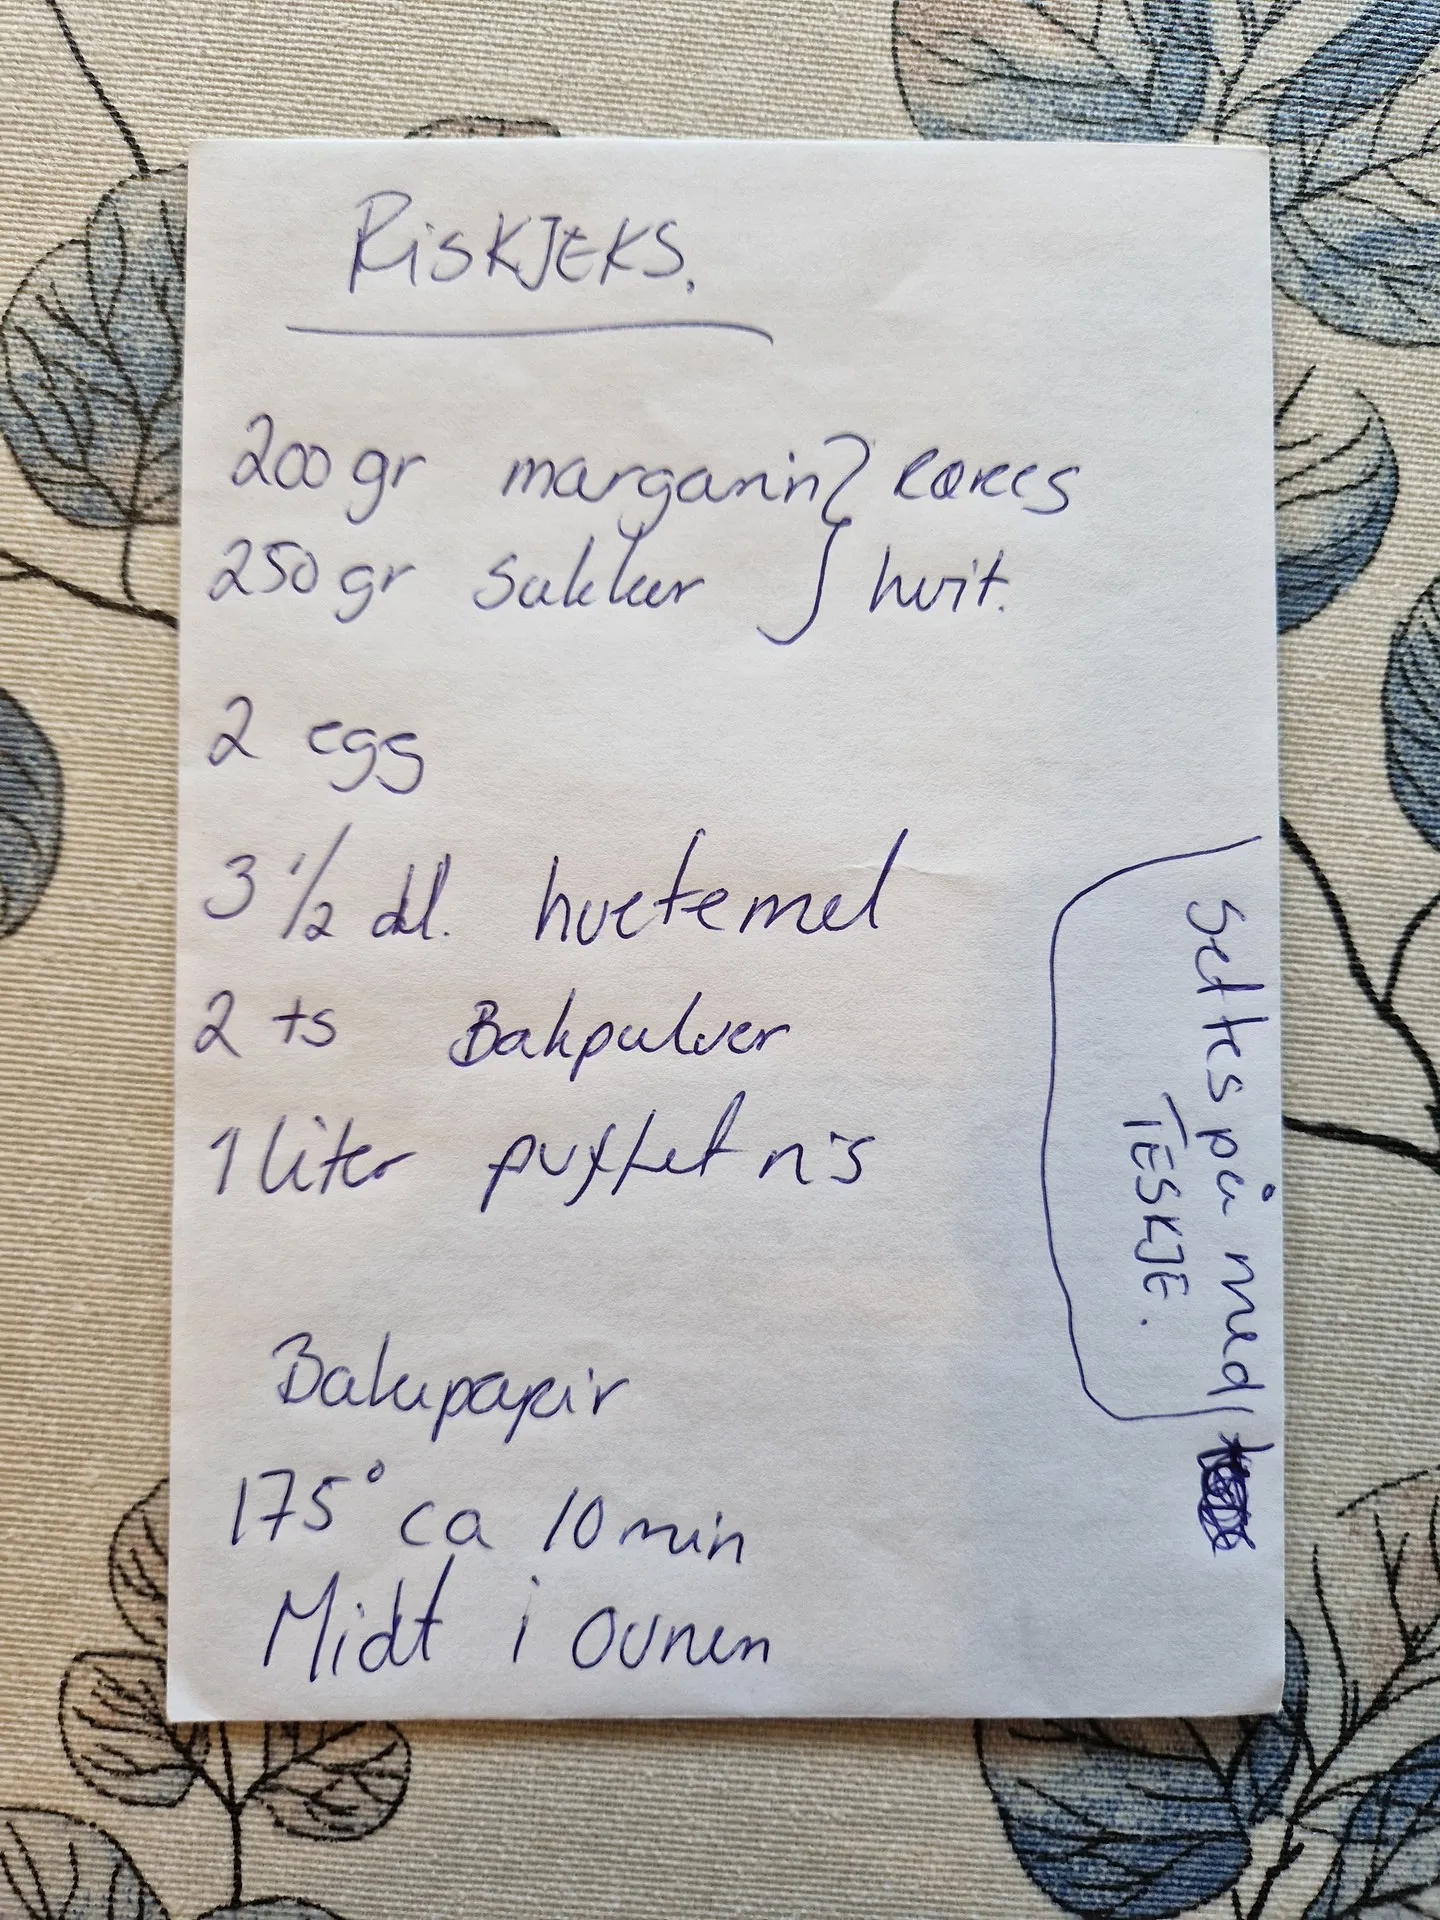 RISKJEKS.
200 gr margarin } røres
250 gr sukker } hvit.
2 egg
3 1/2 dl. hvetemel
2 ts Bakpulver
1 liter puffet ris
Bakepapir
175° ca 10 min
Midt i ovnen
Settes på med
TESKJE.